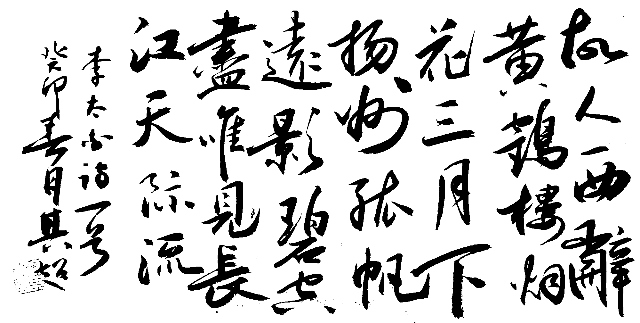 故人西辭
黃鶴樓烟
花三月下
揚州孤帆
遠影碧空
盡唯見長
江天際流
李太白詩一首
癸卯春月其超